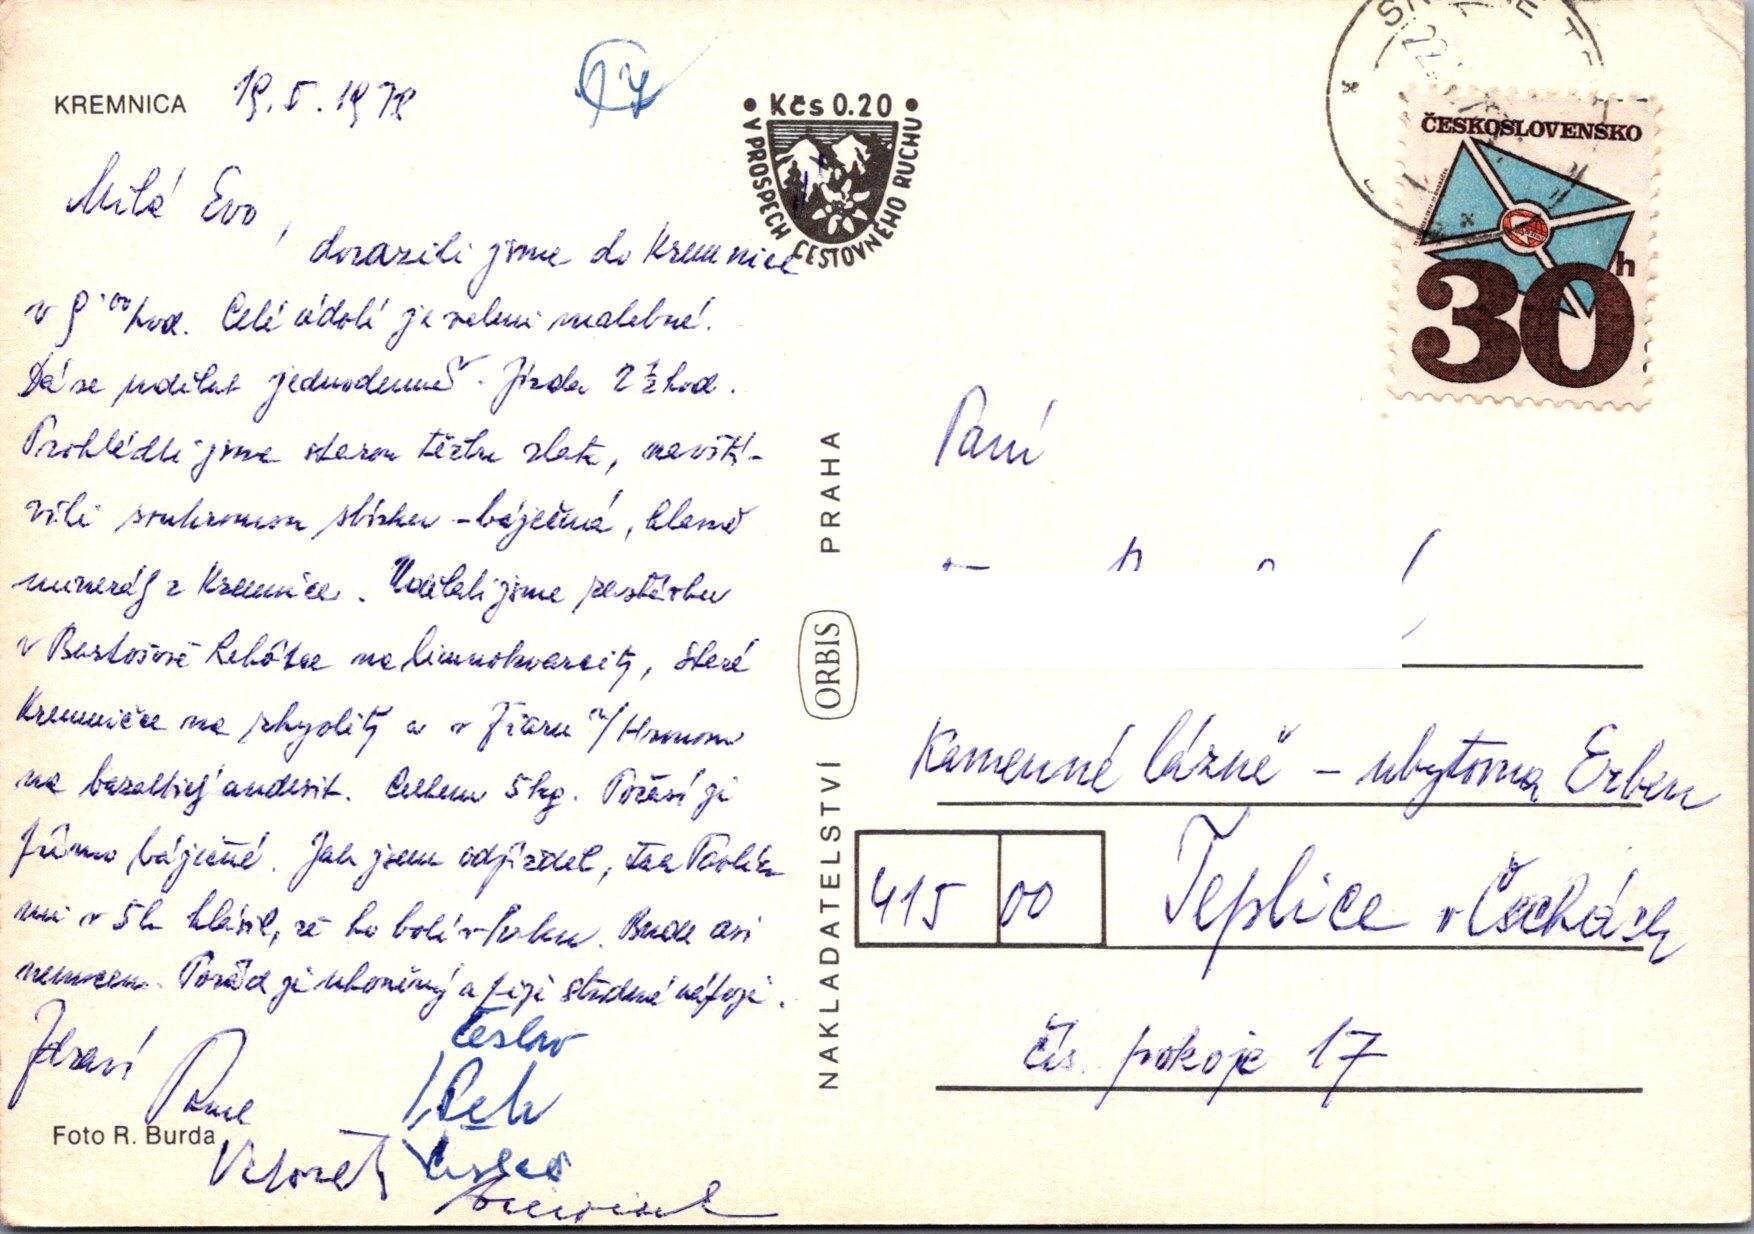 KREMNICA 19. 5. 1978
17
Kčs 0.20
V PROSPECH CESTOVNÉHO RUCHU
ČESKOSLOVENSKO
30 h
Milá Evo,
dorazili jsme do Kremnice
v 9.00 hod. Celé údolí je velmi malebné.
Dá se udělat jednodenně. Jízda 2 1/2 hod.
Prohlédli jsme starou těžbu zlata, navští-
vili soukromou sbírku - báječná, hlavně
minerály z Kremnice. Udělali jsme zastávku
v Bartošově Lehôtce na limnokvarcity, Staré
Kremničce na rhyolity a v Žiaru n/Hronom
na bazaltický andesit. Celkem 5 kg. Počasí je
přímo báječné. Jak jsem odjížděl, tak Pavlík
mi v 5 h hlásil, že ho bolí v krku. Bude asi
nemocen. Pořád je uhoněný a pije studené nápoje.
Zdraví
Foto R. Burda
NAKLADATELSTVÍ ORBIS PRAHA
Paní
Kamenné lázně - ubytovna Erben
415 00 Teplice v Čechách
čís. pokoje 17